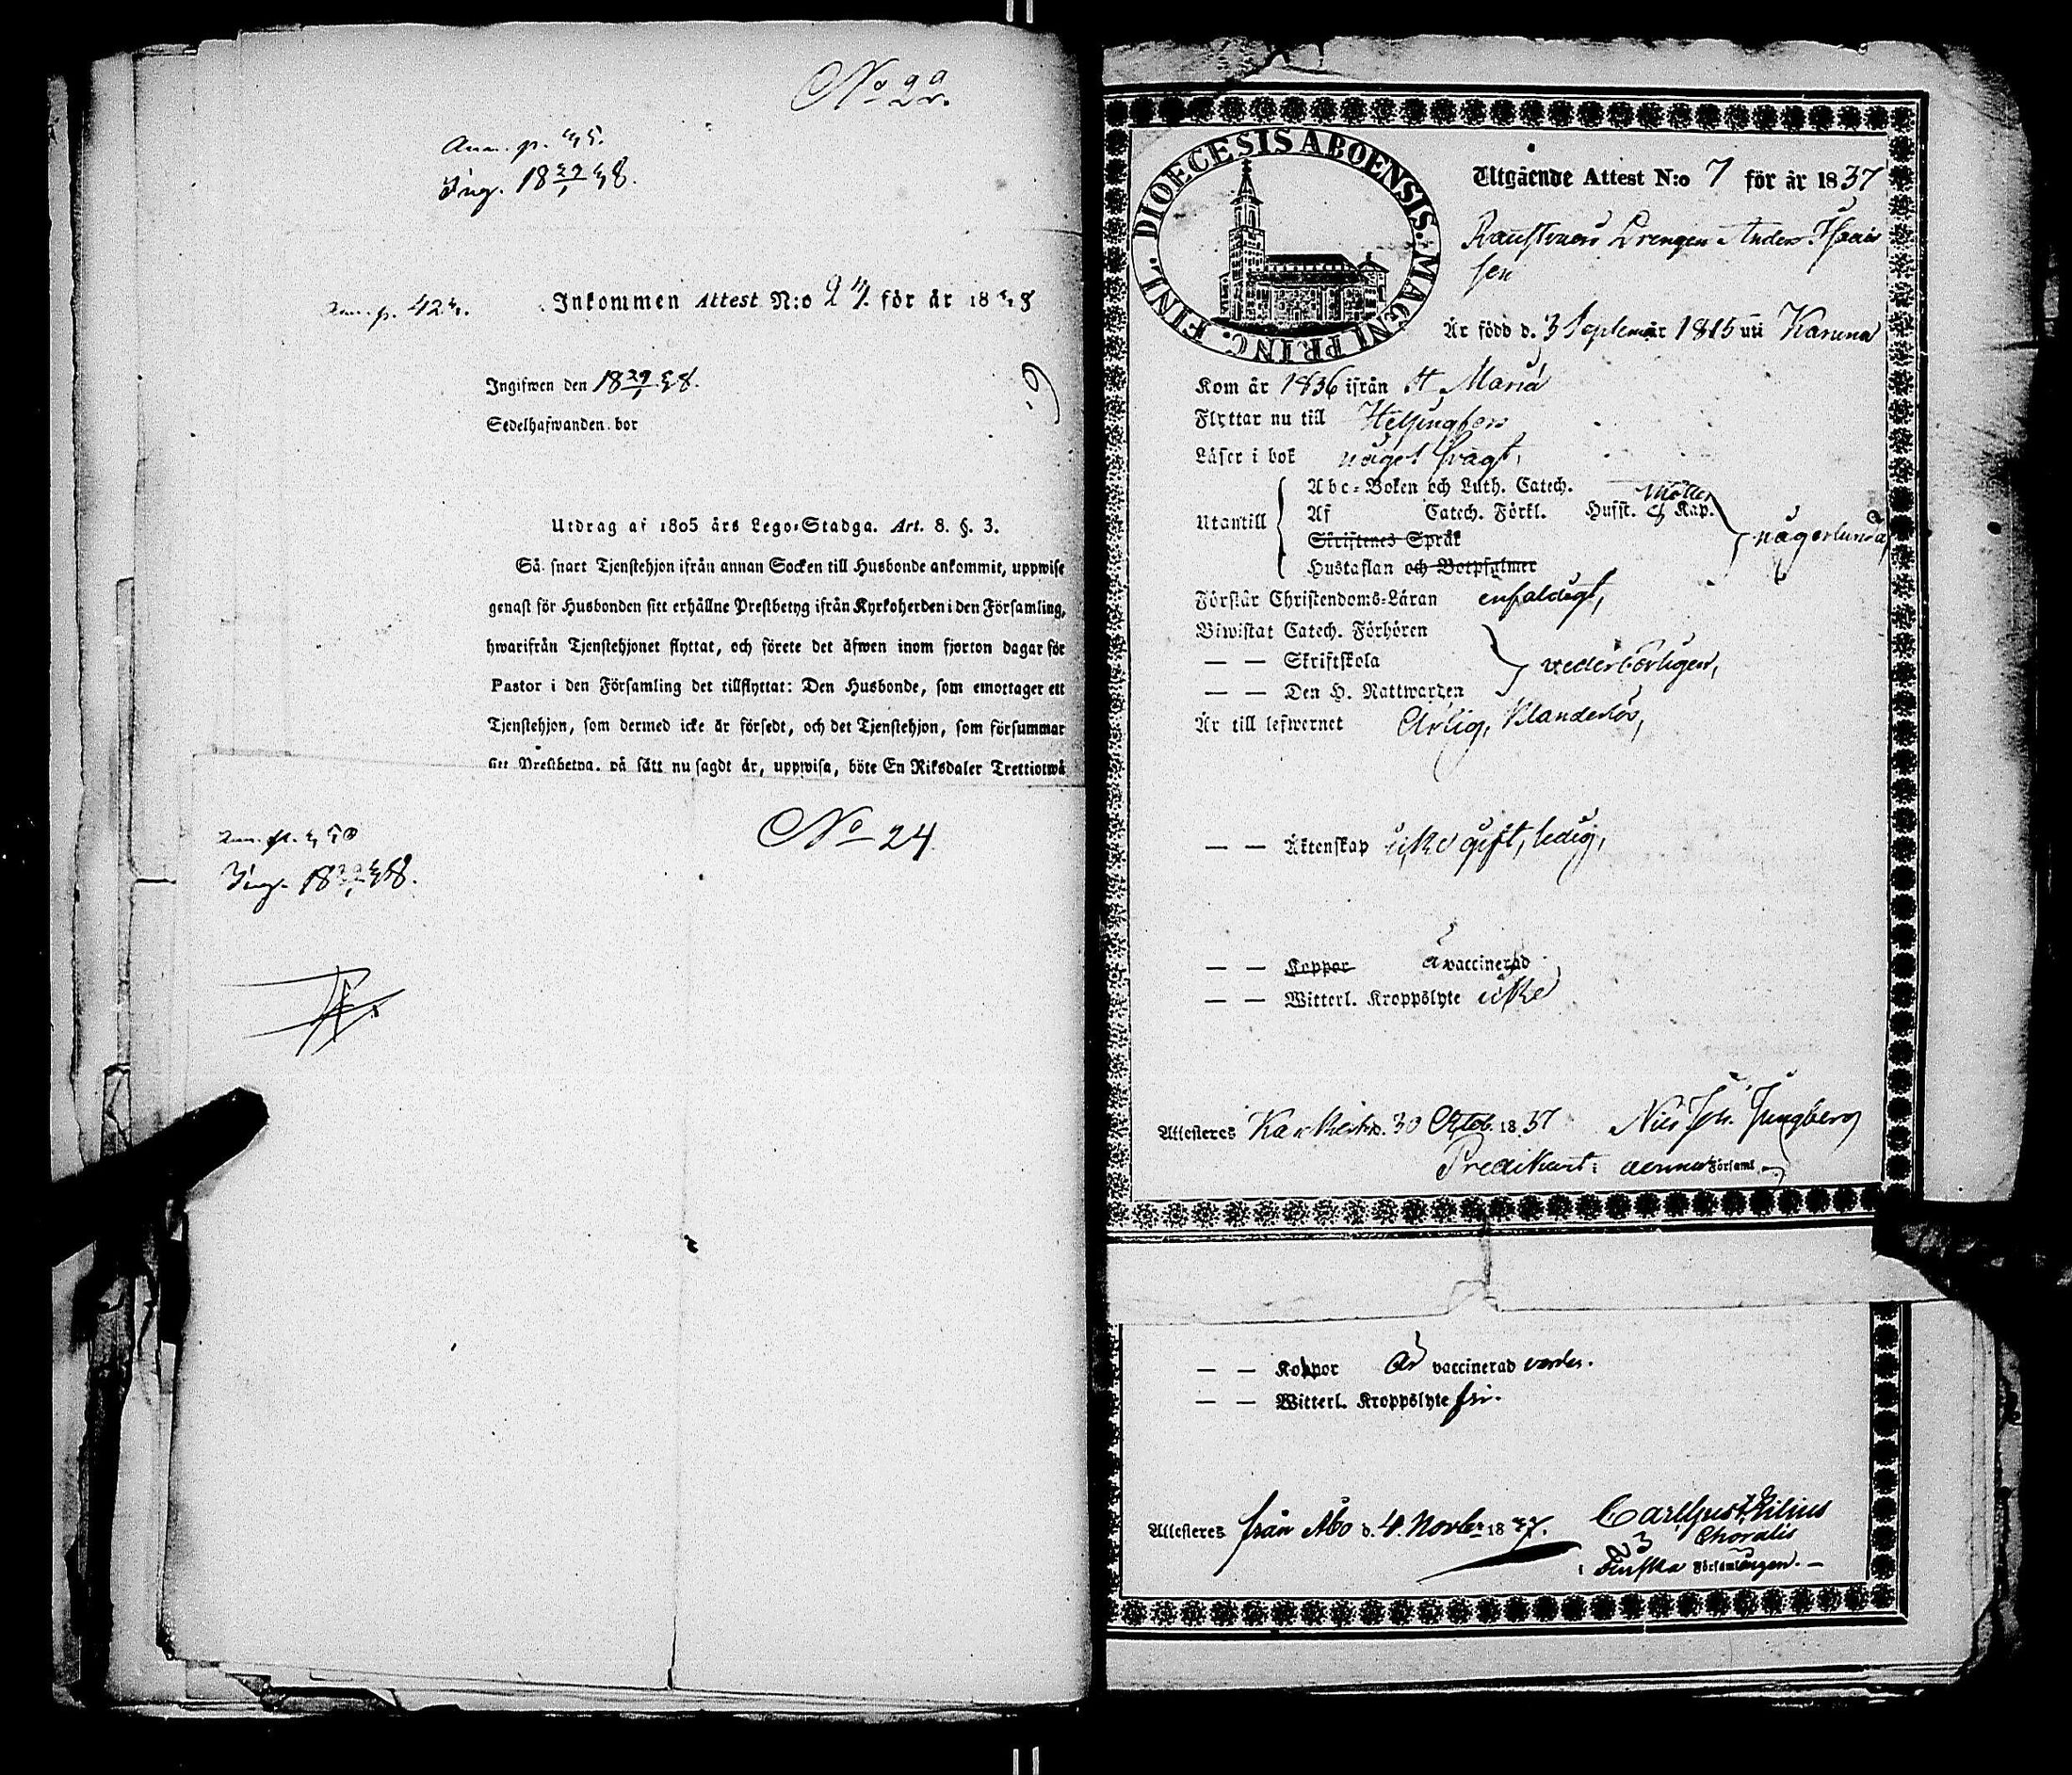 No 22.
Ann. p. 45.
Ing. 18 29/1 38.
Ann. p. 424.
Inkommen Attest N:o 24. för år 1838
Ingifwen den 18 29/1 38.
Sedelhafwanden bor
Utdrag af 1805 års Lego-Stadga. Art. 8. §. 3.
Så snart Tjenstehjon ifrån annan Socken till Husbonde ankommit, uppwise
genast för Husbonden sitt erhållne Prestbetyg ifrån Kyrkoherden i den Församling,
hwarifrån Tjenstehjonet flyttat, och förete det äfwen inom fjorton dagar för
Pastor i den Församling det tillflyttat: Den Husbonde, som emottager ett
Tjenstehjon, som dermed icke är försedt, och det Tjenstehjon, som försummar
sitt Prestbetyg, på sätt nu sagdt är, uppwisa, böte En Riksdaler Trettiotwå
No 24
Ing. 18 38.
DIOECESIS ABOENSIS. MAGNI PRINC. FINL.
Utgående Attest N:o 7 för år 1837
Drengen Anders Isaks
son
Är född d. 3 September 1815 uti Karuna
Kom år 1836 ifrån St Maria
Flyttar nu till Helsingfors
Läser i bok något svagt,
Abc-Boken och Luth. Catech.
Utantill Af Catech. Förkl. Husst. och Kap. någorlunda
Skriftenes Språk
Hustaflan och Botpsalmer
Förstår Christendoms-Läran enfaldigt,
Biwistat Catech. Förhören
— — Skriftskola vederbörligen,
— — Den H. Nattwarden
Är till lefwernet Ärlig, Klanderlös,
— — Äktenskap icke gift, ledig,
— — Koppor är vaccinerad
— — Witterl. Kroppslyte icke
Attesteras Karkku d. 30 Octob. 1837 Nils Joh. Ljungberg
Predikant i denna Församl.
— — Koppor är vaccinerad worden.
— — Witterl. Kroppslyte fri.
Attesteras från Åbo d. 4. Novbr 1837. Carl Gust.
Choralis
i Finska Församlingen. —